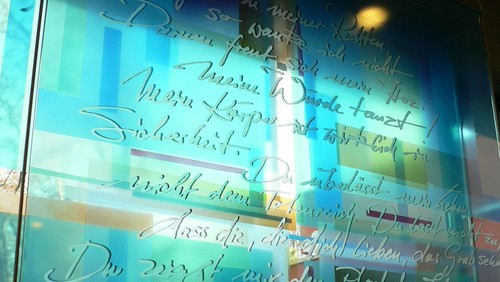 zu meiner Rechten
so wanke ich nicht
Darum freut sich mein Herz.
Meine Würde tanzt!
Mein Körper ist wirklich in
Sicherheit.
Du überlässt mein
nicht dem Totenreich Du lässt nicht zu
dass die, die dich lieben, das Grab sehen
Du zeigst mir den